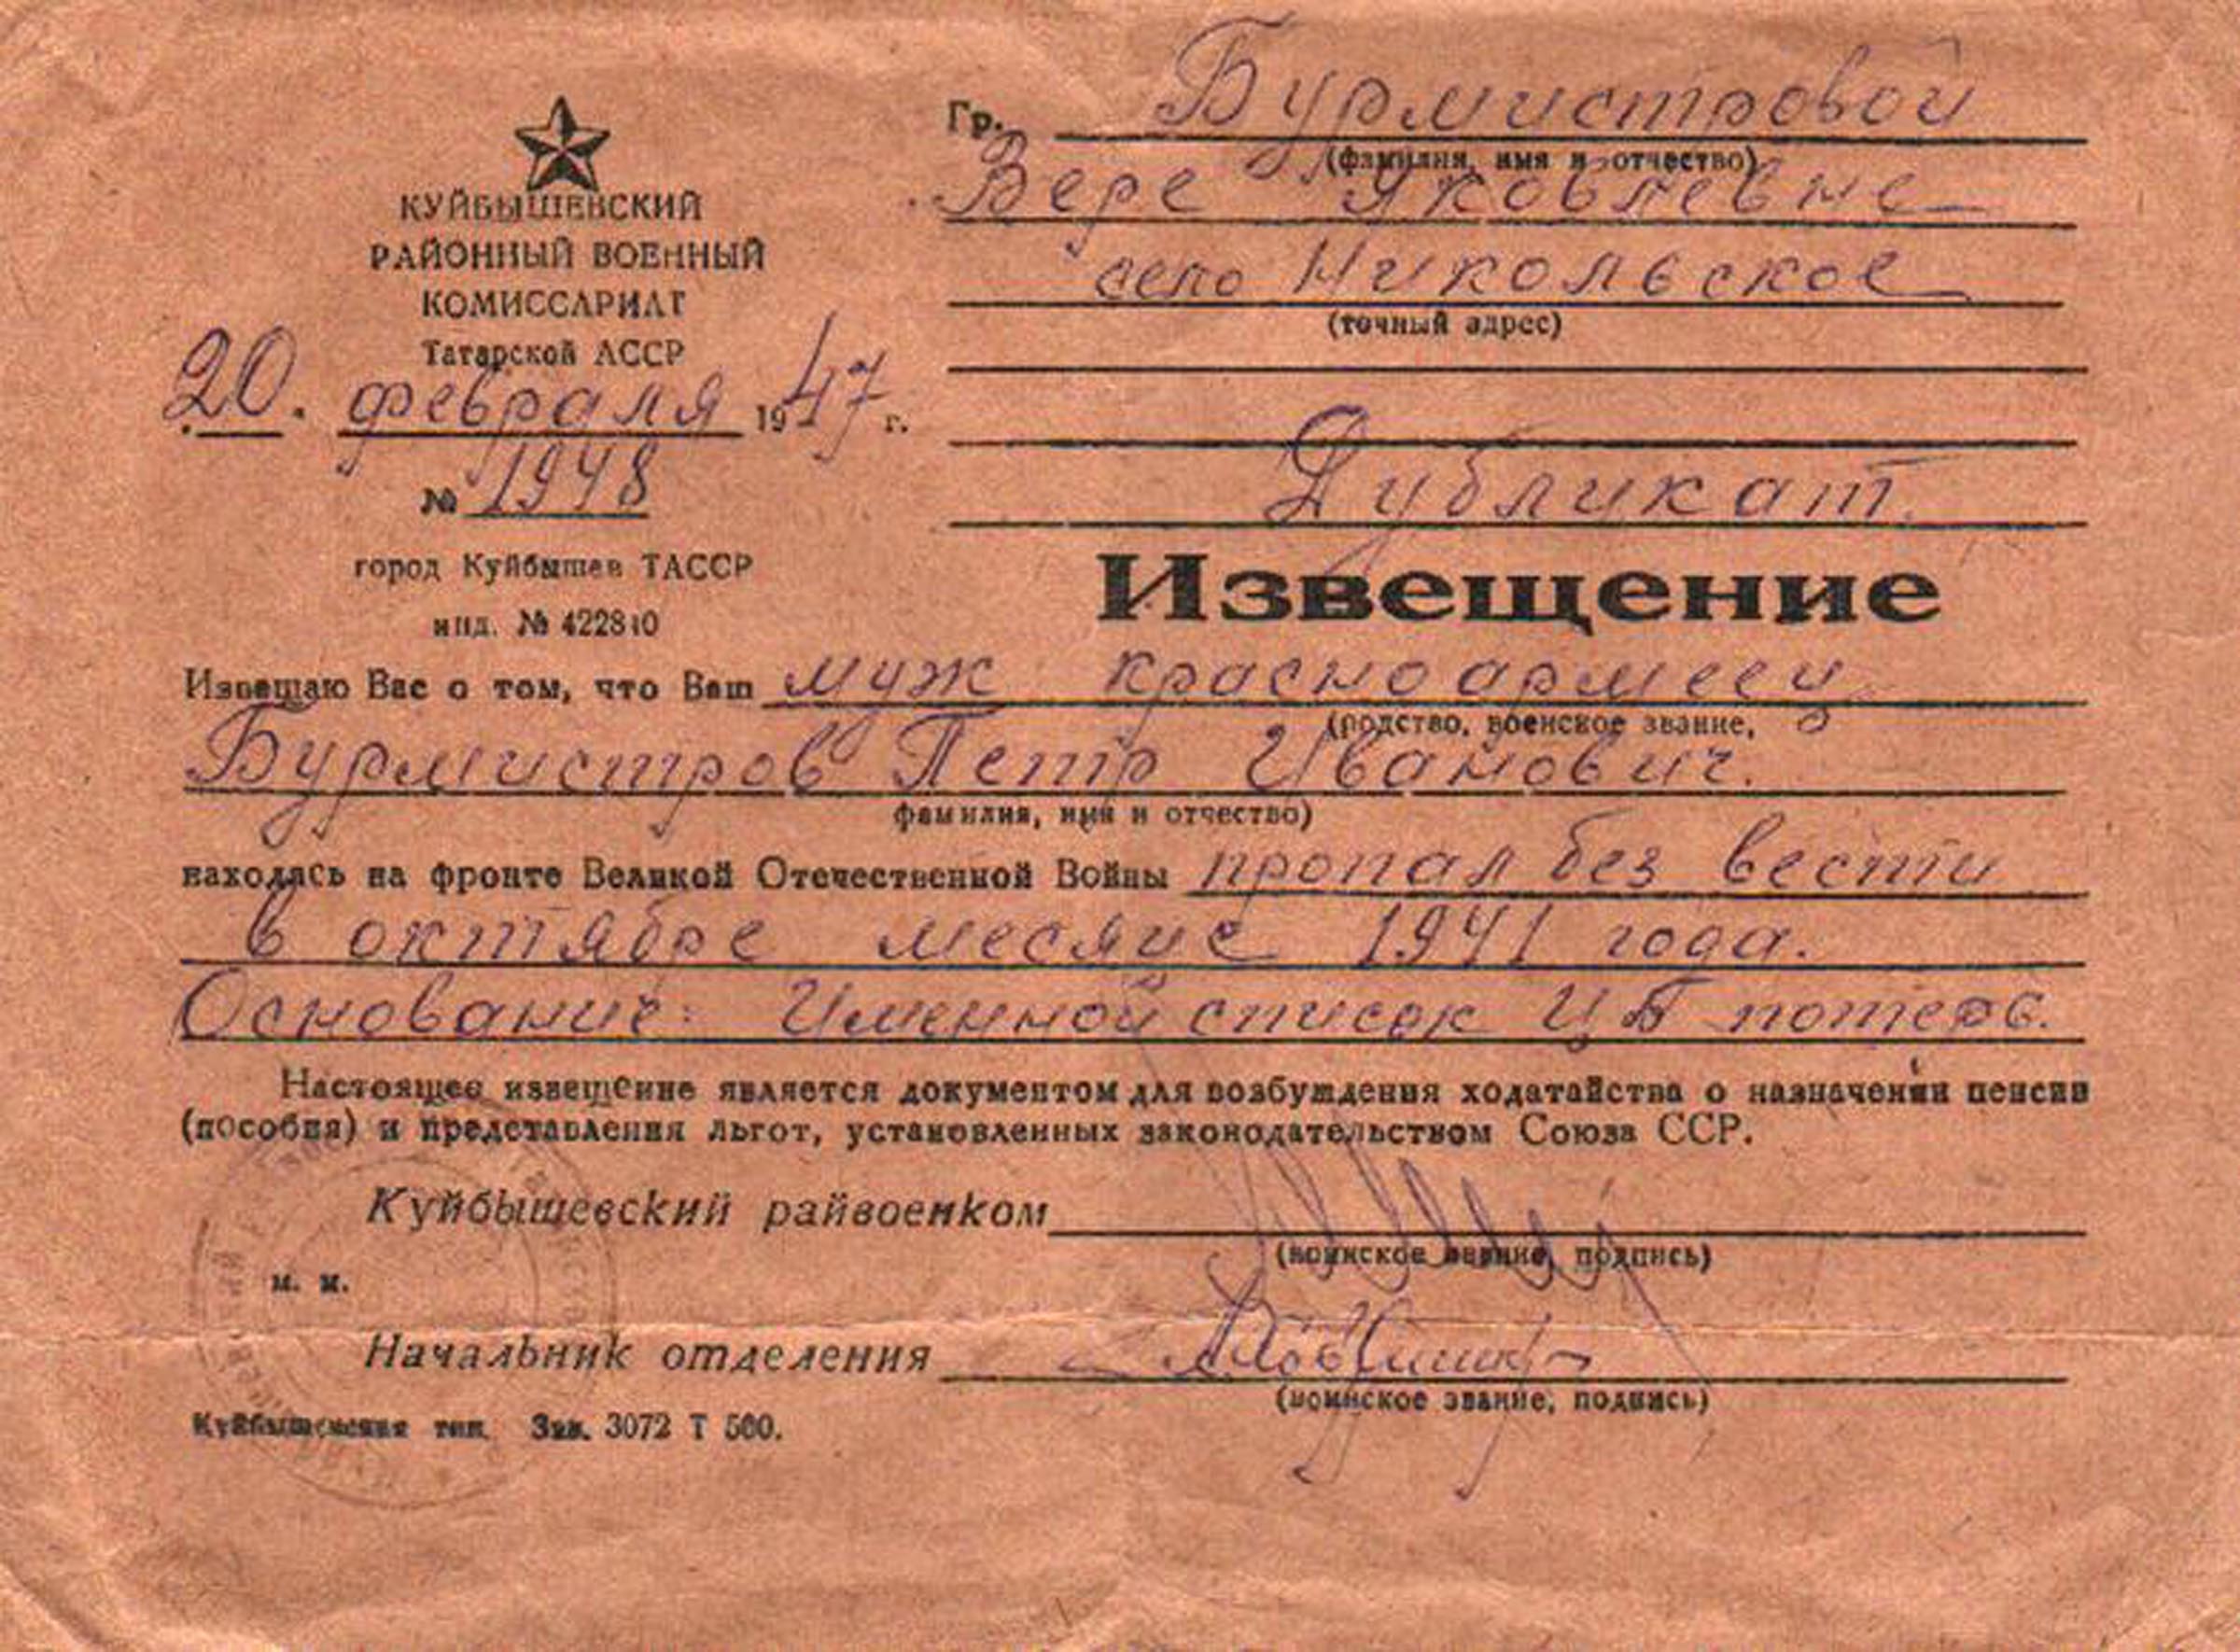 КУЙБЫШЕВСКИЙ
РАЙОННЫЙ ВОЕННЫЙ
КОМИССАРИАТ
Татарской АССР
20. февраля 1947 г.
№ 1948
город Куйбышев ТАССР
инд. № 422840
Гр. Бурмистровой
(фамилия, имя и отчество)
Вере Яковлевне
село Никольское
(точный адрес)
Дубликат.
Извещение
Извещаю Вас о том, что Ваш муж красноармеец
(родство, воинское звание,
Бурмистров Петр Иванович.
фамилия, имя и отчество)
находясь на фронте Великой Отечественной Войны пропал без вести
в октябре месяце 1941 года.
Основание: Именной список ЦБ потерь.
Настоящее извещение является документом для возбуждения ходатайства о назначении пенсии
(пособия) и представления льгот, установленных законодательством Союза ССР.
Куйбышевский райвоенком
(воинское звание, подпись)
м. п.
Начальник отделения
(воинское звание, подпись)
Куйбышевская тип. Зак. 3072 Т 500.